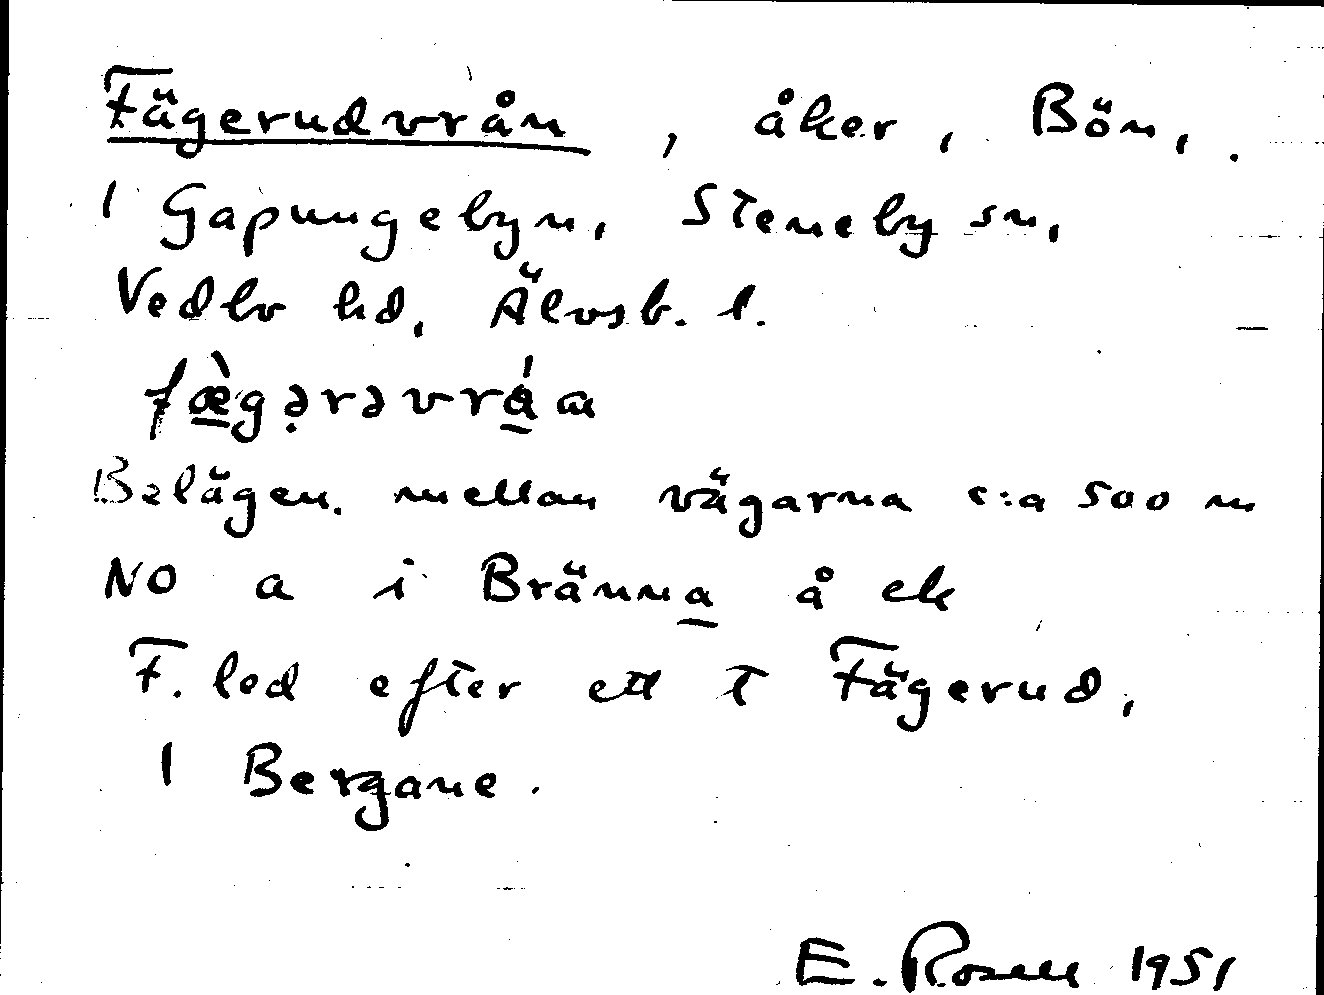 Fägerudvrån, åker, Bön,
1 Gapungebyn, Steneby sn,
Vedbo hd, Älvsb. l.
fæ̀gərəvrá
Belägen mellan vägarna c:a 500 m
NO a i Bränna å ek
F. led efter ett T Fägerud,
1 Bergane.
E. Rosell 1951